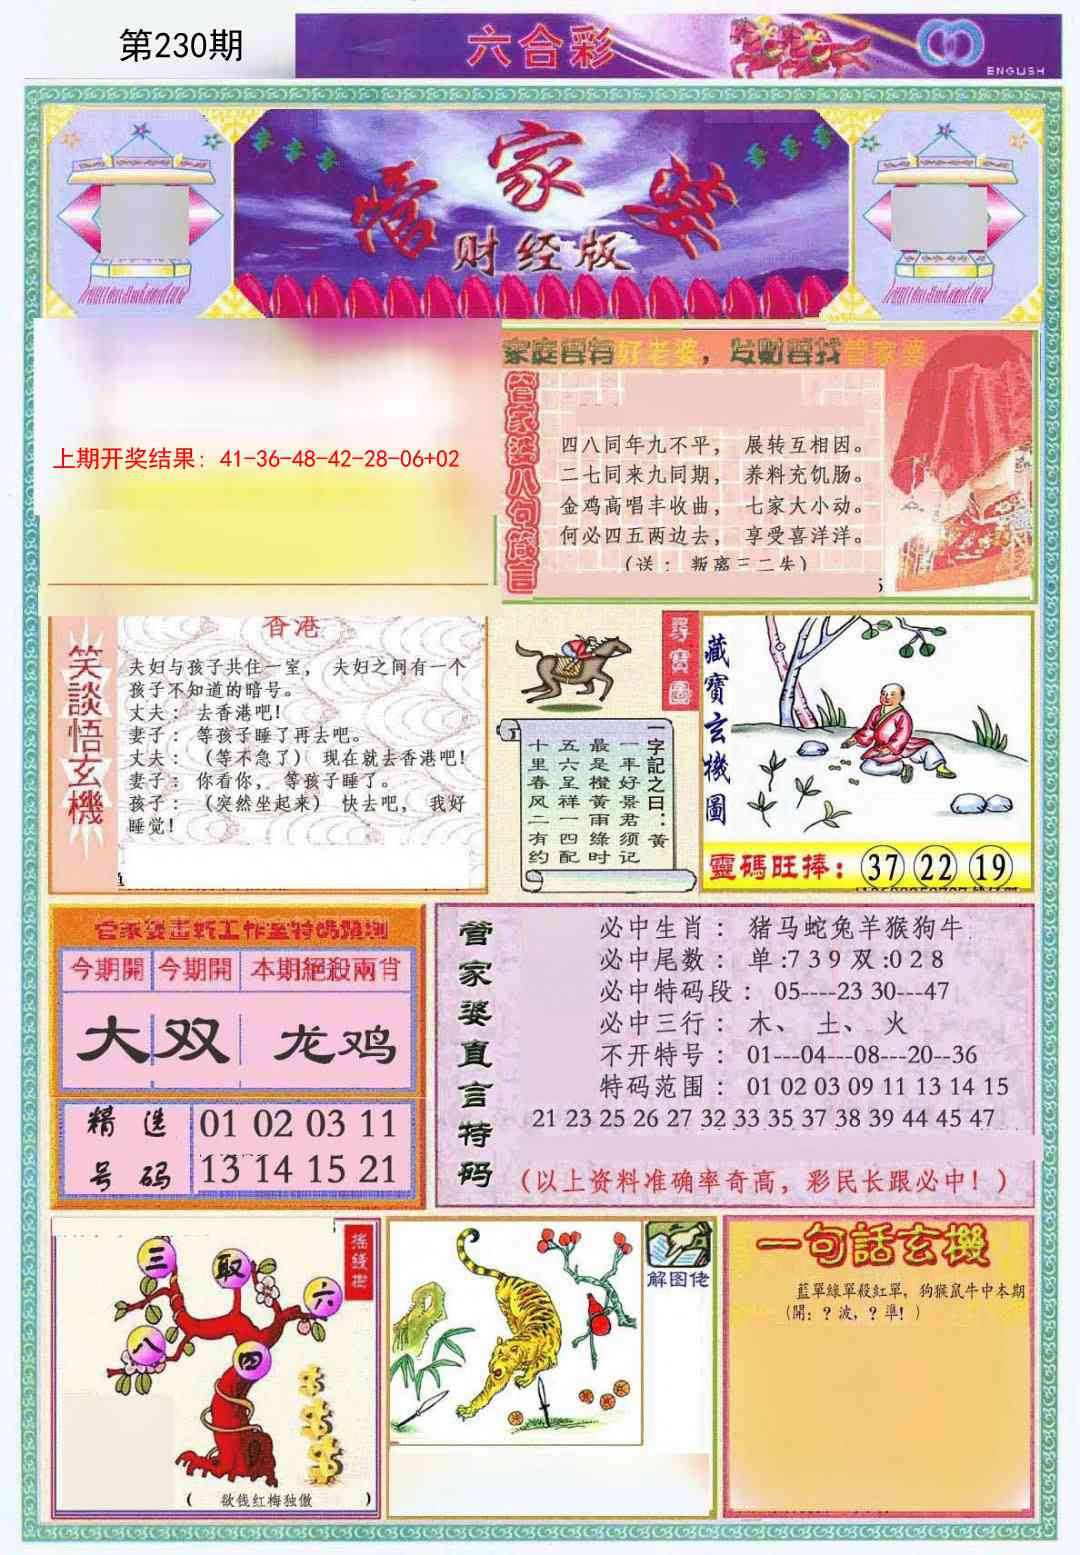 第230期
六合彩
ENGLISH
管家婆
财经版
上期开奖结果: 41-36-48-42-28-06+02
家庭要有好老婆，发财要找管家婆
管家婆八句箴言
四八同年九不平， 展转互相因。
二七同来九同期， 养料充饥肠。
金鸡高唱丰收曲， 七家大小动。
何必四五两边去， 享受喜洋洋。
(送： 叛离三二失)
笑談悟玄機
香港
夫妇与孩子共住一室， 夫妇之间有一个
孩子不知道的暗号。
丈夫： 去香港吧!
妻子： 等孩子睡了再去吧。
丈夫： （等不急了） 现在就去香港吧!
妻子： 你看你， 等孩子睡了。
孩子： （突然坐起来） 快去吧， 我好
睡觉!
尋寶圖
一字記之曰：黄
一年好景君须记
最是橙黄雨綠时
五六呈祥一四配
十里春风二有约
藏寶玄機圖
靈碼旺捧：37 22 19
管家婆畫新工作室特碼預測
今期開 今期開 本期絕殺兩肖
大 双 龙鸡
精选号码
01 02 03 11
13 14 15 21
管家婆直言特码
必中生肖： 猪马蛇兔羊猴狗牛
必中尾数： 单:7 3 9 双:0 2 8
必中特码段： 05----23 30---47
必中三行： 木、 土、 火
不开特号： 01---04---08---20--36
特码范围： 01 02 03 09 11 13 14 15
21 23 25 26 27 32 33 35 37 38 39 44 45 47
（以上资料准确率奇高，彩民长跟必中！）
搖錢樹
三 取 六
八 四
( 欲钱红梅独傲 )
解图佬
一句話玄機
藍單綠單殺紅單，狗猴鼠牛中本期
(開：？波，？準！)